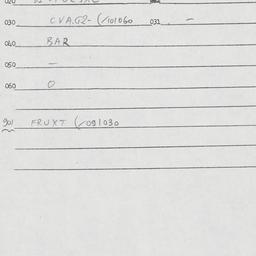 030 CVA.G2- (/101060 031. -
040 BAR
050 -
060 0
901 FRUXT (/091030